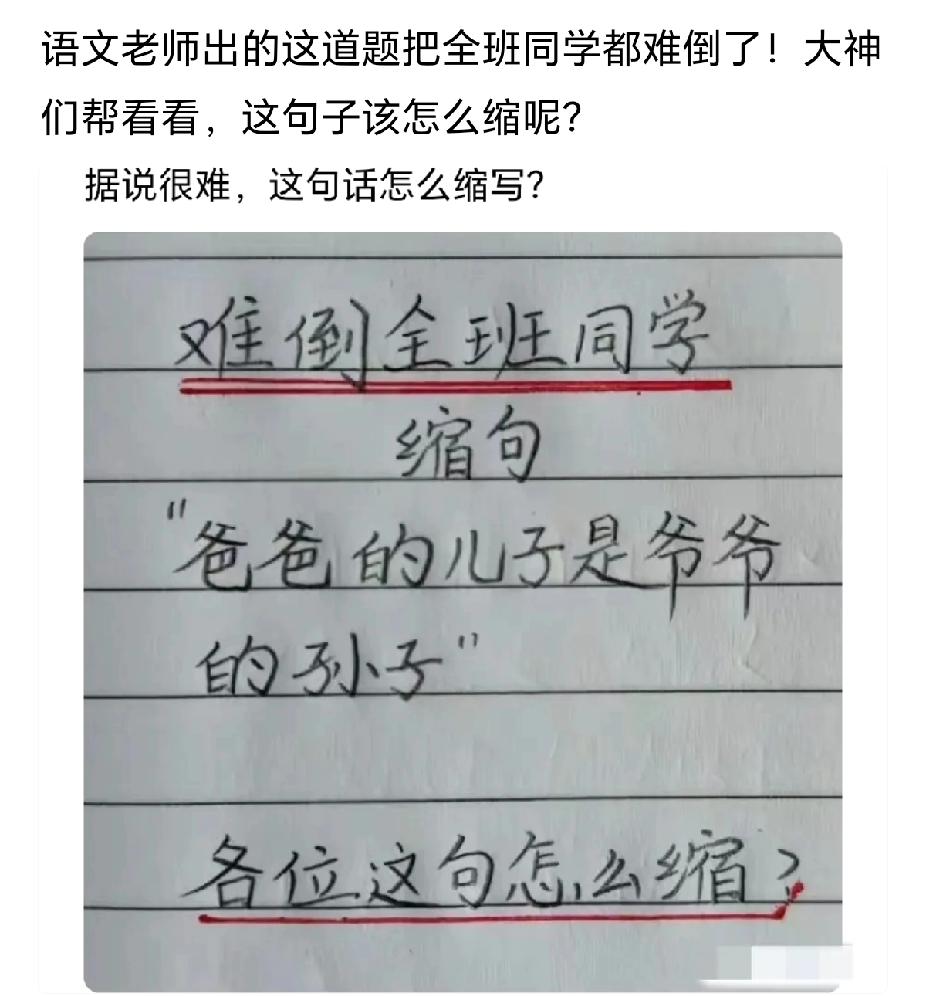 语文老师出的这道题把全班同学都难倒了！大神
们帮看看，这句子该怎么缩呢？
据说很难，这句话怎么缩写？
难倒全班同学
缩句
"爸爸的儿子是爷爷
的孙子"
各位这句怎么缩？